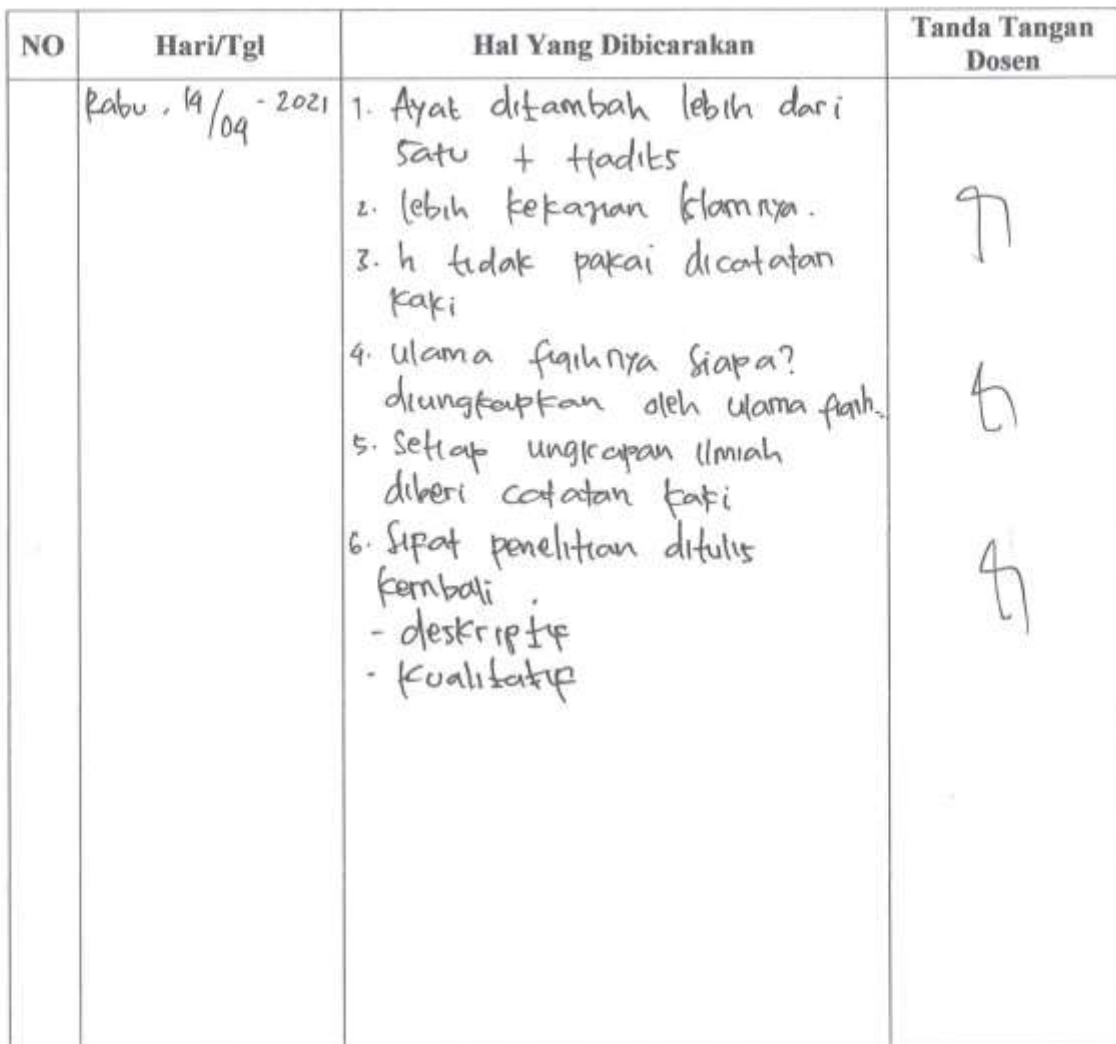 NO Hari/Tgl Hal Yang Dibicarakan Tanda Tangan Dosen
Rabu, 14/04 - 2021
1. Ayat ditambah lebih dari
satu + Hadits
2. lebih kekajian Islamnya.
3. h tidak pakai dicatatan
kaki
4. Ulama fiqihnya siapa?
diungkapkan oleh ulama fiqih.
5. Setiap ungkapan ilmiah
diberi catatan kaki
6. Sifat penelitian ditulis
kembali.
- deskriptif
- Kualitatif